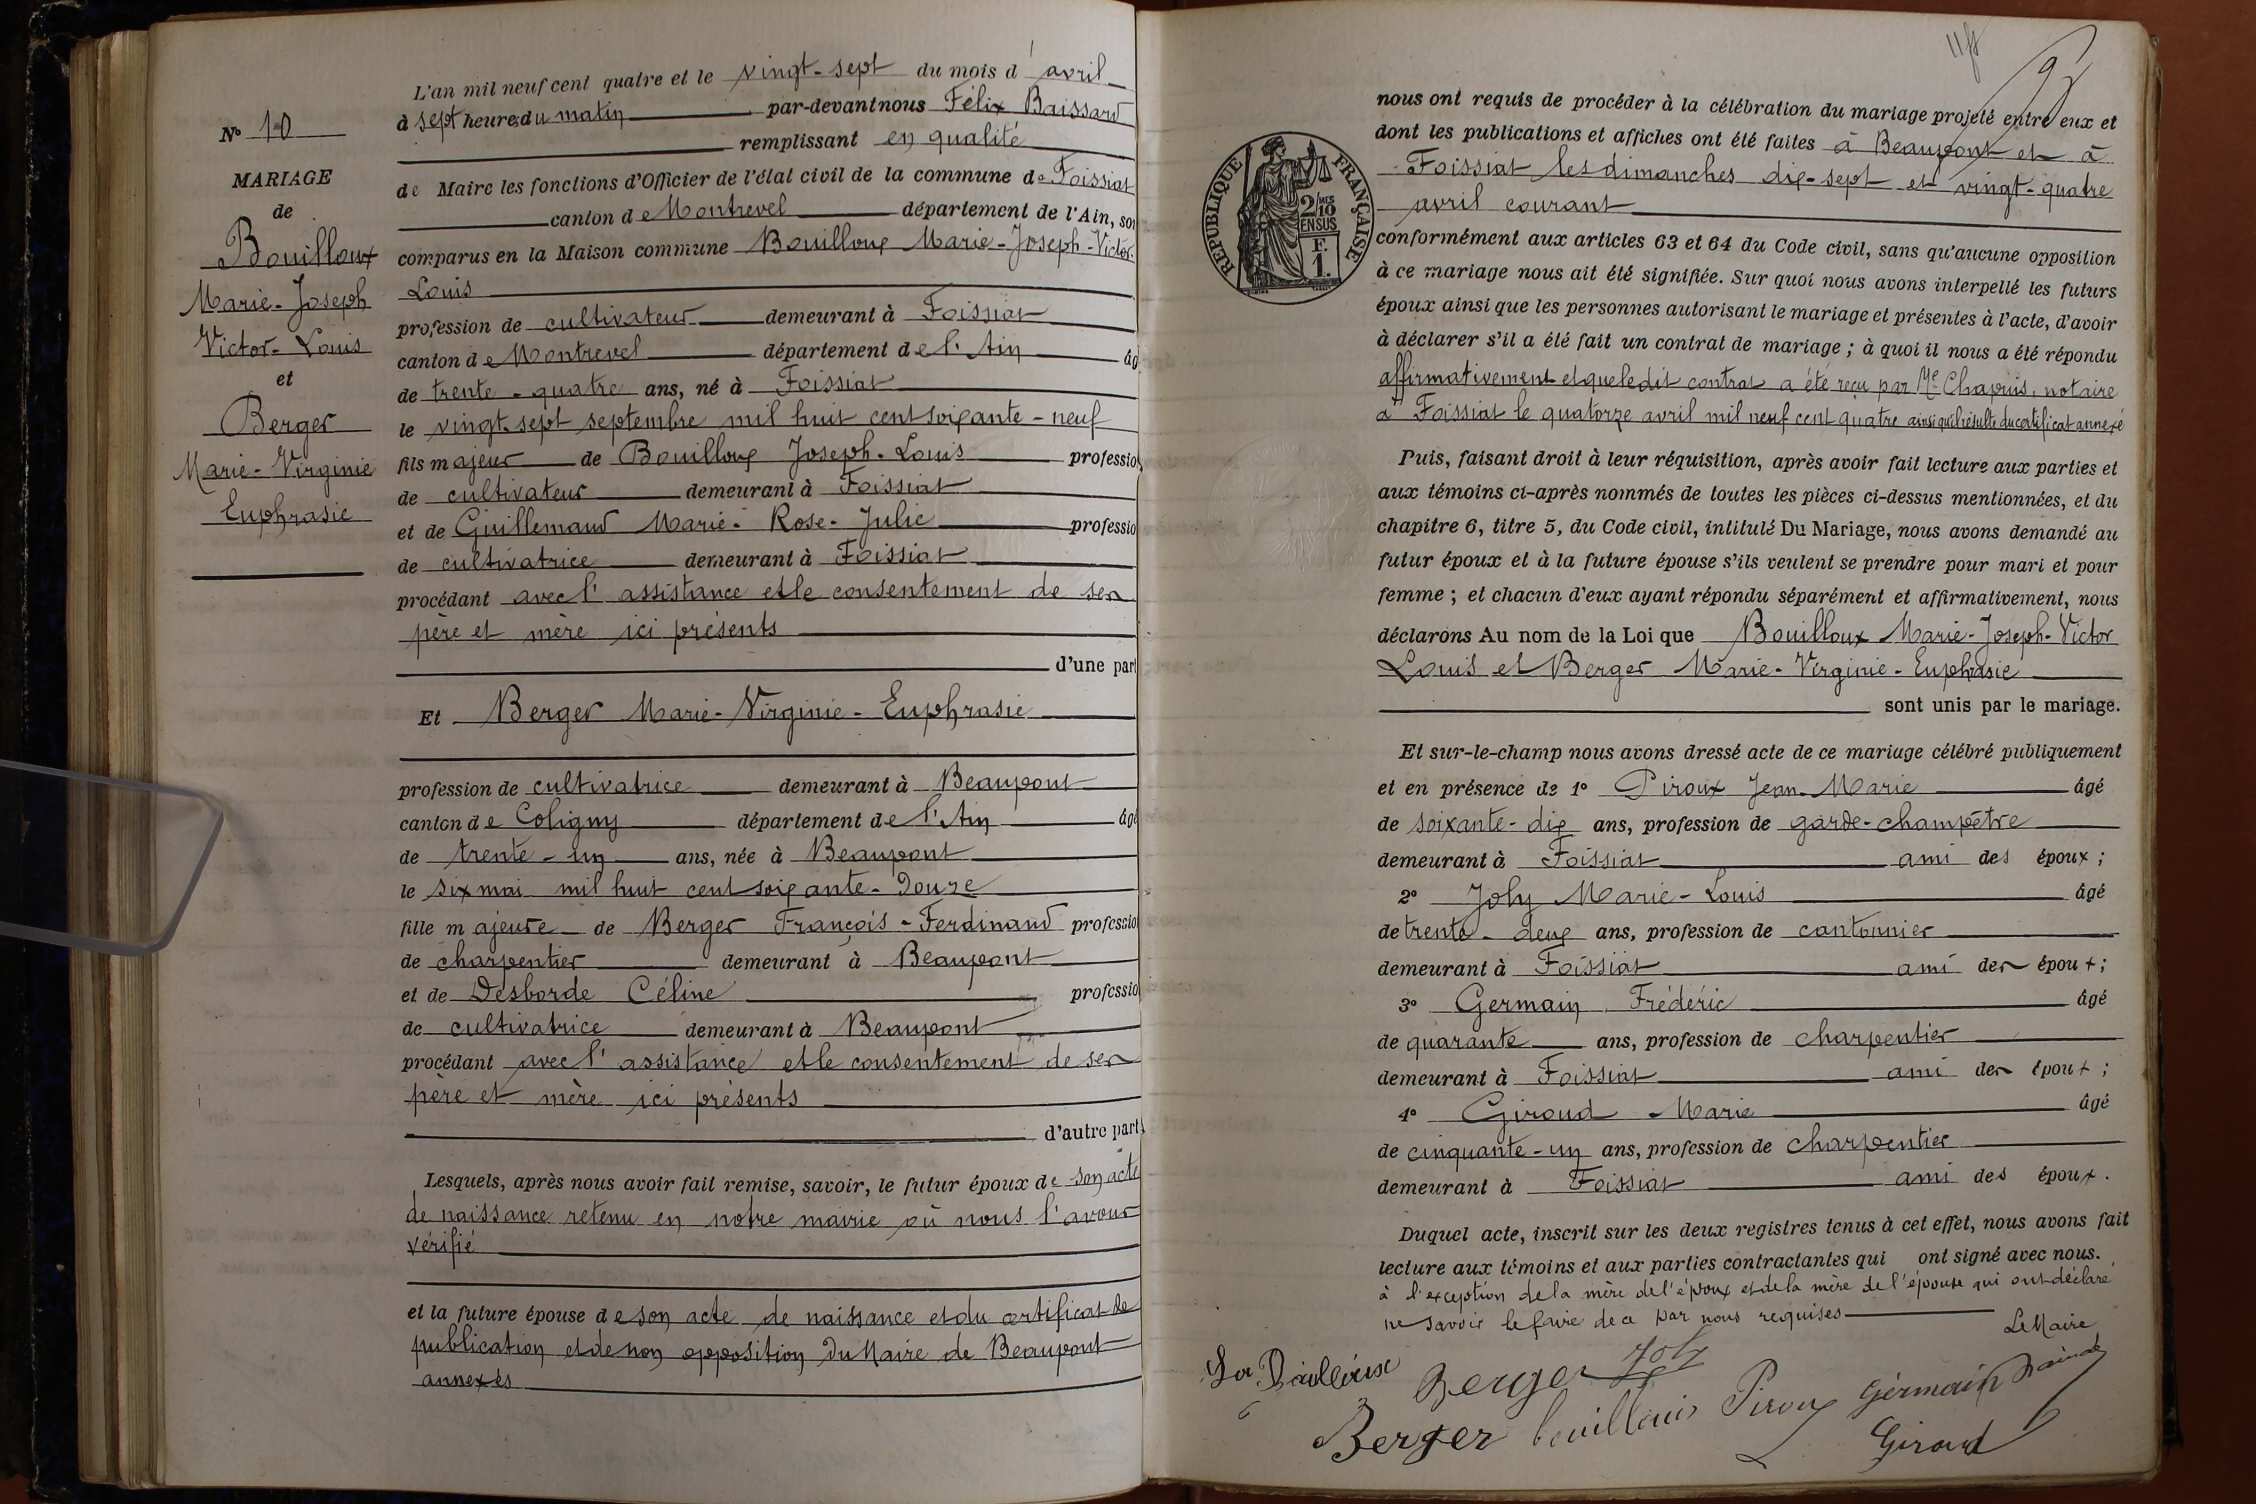 N° 10
MARIAGE
de
Bouilloux
Marie-Joseph
Victor-Louis
et
Berger
Marie-Virginie
Euphrasie
L'an mil neuf cent quatre et le vingt-sept du mois d'avril
à sept heures du matin par-devant nous Félix Baissard
remplissant en qualité
de Maire les fonctions d'Officier de l'état civil de la commune de Foissiat
canton de Montrevel département de l'Ain, son
comparus en la Maison commune Bouilloux Marie-Joseph-Victor-
Louis
profession de cultivateur demeurant à Foissiat
canton de Montrevel département de l'Ain âg
de trente-quatre ans, né à Foissiat
le vingt-sept septembre mil huit cent soixante-neuf
fils majeur de Bouilloux Joseph-Louis profession
de cultivateur demeurant à Foissiat
et de Guillemaud Marie-Rose-Julie profession
de cultivatrice demeurant à Foissiat
procédant avec l'assistance et le consentement de ses
père et mère ici présents
d'une part
Et Berger Marie-Virginie-Euphrasie
profession de cultivatrice demeurant à Beaupont
canton de Coligny département de l'Ain âgé
de trente-un ans, née à Beaupont
le six mai mil huit cent soixante-douze
fille majeure de Berger François-Ferdinand profession
de charpentier demeurant à Beaupont
et de Desborde Céline profession
de cultivatrice demeurant à Beaupont
procédant avec l'assistance et le consentement de ses
père et mère ici présents
d'autre part
Lesquels, après nous avoir fait remise, savoir, le futur époux de son acte
de naissance retenu en notre mairie où nous l'avons
vérifié
et la future épouse de son acte de naissance et du certificat de
publication et de non opposition du Maire de Beaupont
annexés
RÉPUBLIQUE FRANÇAISE
2/10 MES
EN SUS
F.
1.
nous ont requis de procéder à la célébration du mariage projeté entre eux et
dont les publications et affiches ont été faites à Beaupont et à
Foissiat les dimanches dix-sept et vingt-quatre
avril courant
conformément aux articles 63 et 64 du Code civil, sans qu'aucune opposition
à ce mariage nous ait été signifiée. Sur quoi nous avons interpellé les futurs
époux ainsi que les personnes autorisant le mariage et présentes à l'acte, d'avoir
à déclarer s'il a été fait un contrat de mariage ; à quoi il nous a été répondu
affirmativement et que ledit contrat a été reçu par Me Chapuis, notaire
à Foissiat le quatorze avril mil neuf cent quatre ainsi qu'il résulte du certificat annexé
Puis, faisant droit à leur réquisition, après avoir fait lecture aux parties et
aux témoins ci-après nommés de toutes les pièces ci-dessus mentionnées, et du
chapitre 6, titre 5, du Code civil, intitulé Du Mariage, nous avons demandé au
futur époux et à la future épouse s'ils veulent se prendre pour mari et pour
femme ; et chacun d'eux ayant répondu séparément et affirmativement, nous
déclarons Au nom de la Loi que Bouilloux Marie-Joseph-Victor
Louis et Berger Marie-Virginie-Euphrasie
sont unis par le mariage.
Et sur-le-champ nous avons dressé acte de ce mariage célébré publiquement
et en présence de 1° Piroux Jean-Marie âgé
de soixante-dix ans, profession de garde-champêtre
demeurant à Foissiat ami des époux ;
2° Joly Marie-Louis âgé
de trente-deux ans, profession de cantonnier
demeurant à Foissiat ami des époux ;
3° Germain Frédéric âgé
de quarante ans, profession de charpentier
demeurant à Foissiat ami des époux ;
4° Giroud Marie âgé
de cinquante-un ans, profession de charpentier
demeurant à Foissiat ami des époux.
Duquel acte, inscrit sur les deux registres tenus à cet effet, nous avons fait
lecture aux témoins et aux parties contractantes qui ont signé avec nous.
à l'exception de la mère de l'époux et de la mère de l'épouse qui ont déclaré
ne savoir le faire de ce par nous requises
Le Maire
Berger Joly
Berger Piroux Germain
Giroud